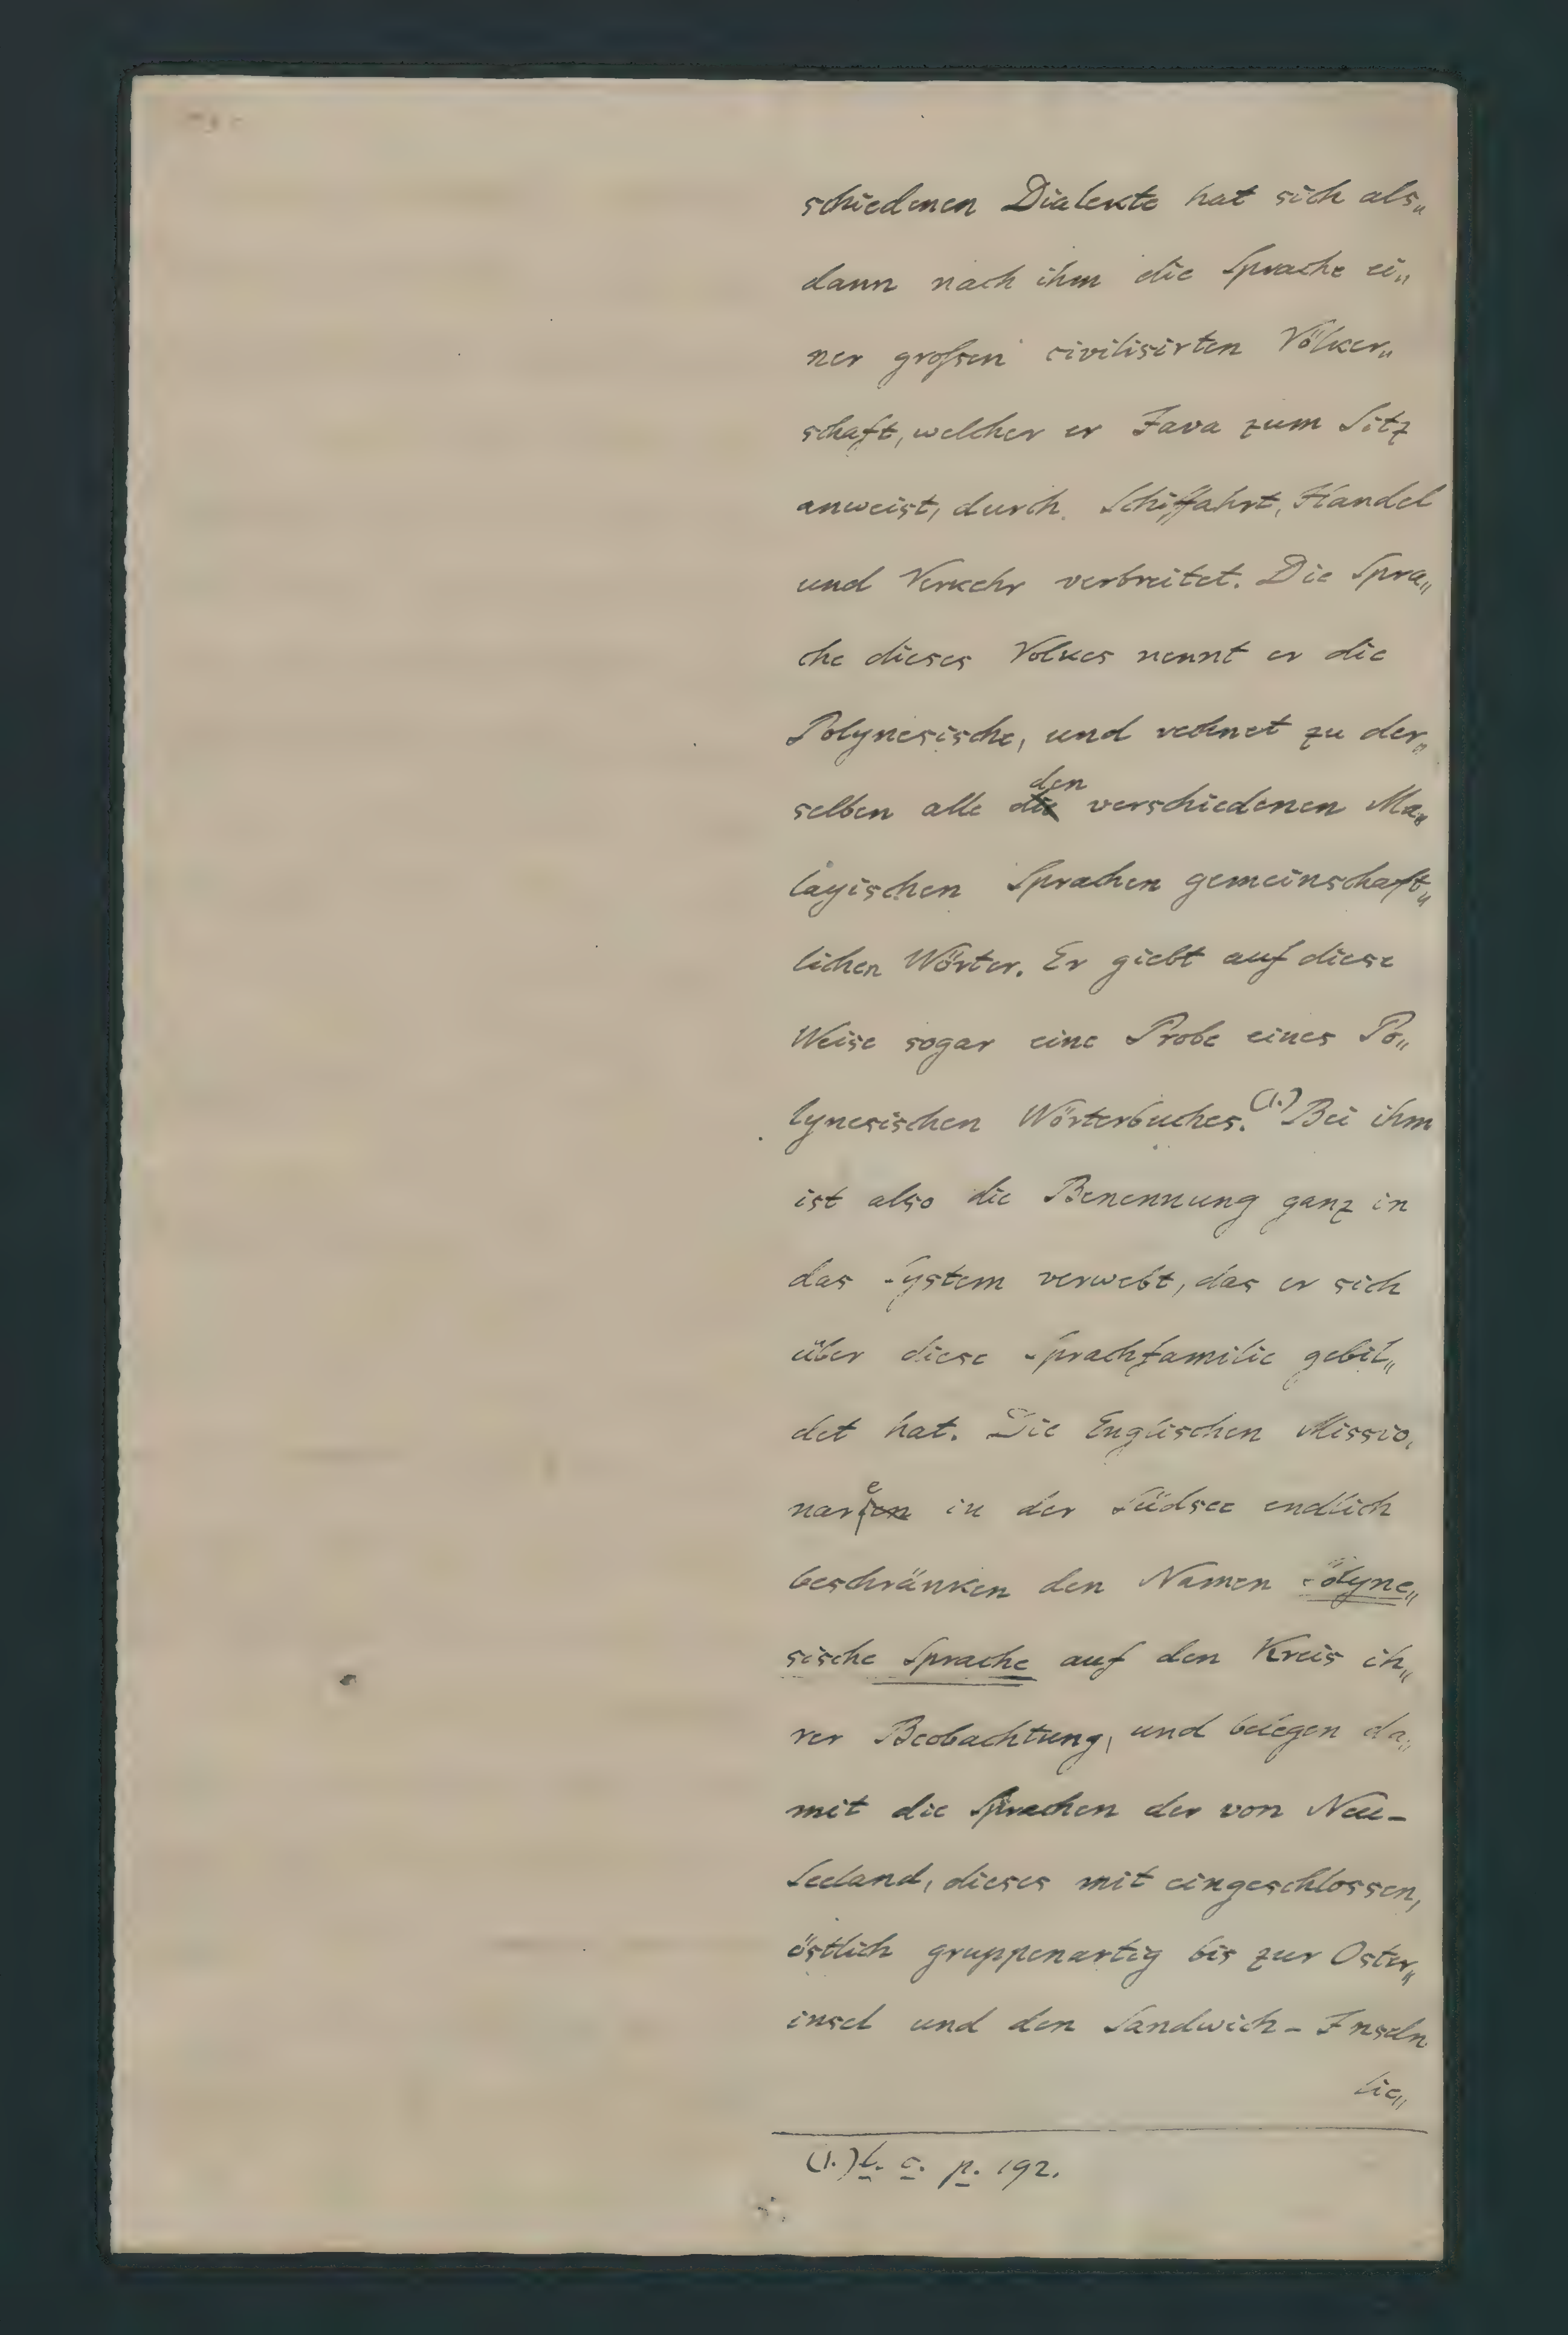 schiedenen Dialekte hat sich als„
dann nach ihm die Sprache ei„
ner großen civilisirten Völker„
schaft, welcher er Java zum Sitz
anweist, durch Schiffahrt, Handel
und Verkehr verbreitet. Die Spra„
che dieses Volkes nennt er die
Polynesische, und rechnet zu der„
den
selben alle die verschiedenen Ma„
layischen Sprachen gemeinschaft„
lichen Wörter. Er giebt auf diese
Weise sogar eine Probe eines Po„
lynesischen Wörterbuches.(1.) Bei ihm
ist also die Benennung ganz in
das System verwebt, das er sich
über diese Sprachfamilie gebil„
det hat. Die Englischen Missio„
e
narien in der Südsee endlich
beschränken den Namen Polyne„
sische Sprache auf den Kreis ih„
rer Beobachtung, und belegen da„
mit die Sprachen der von Neu-
Seeland, dieses mit eingeschlossen,
östlich gruppenartig bis zur Oster„
insel und den Sandwich-Inseln
lie„
(1.) l. c. p. 192.